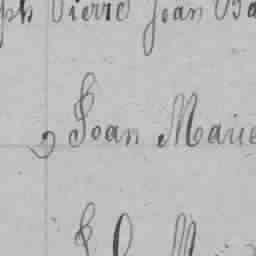 ph Pierre Jean Ba
, Jean Marie